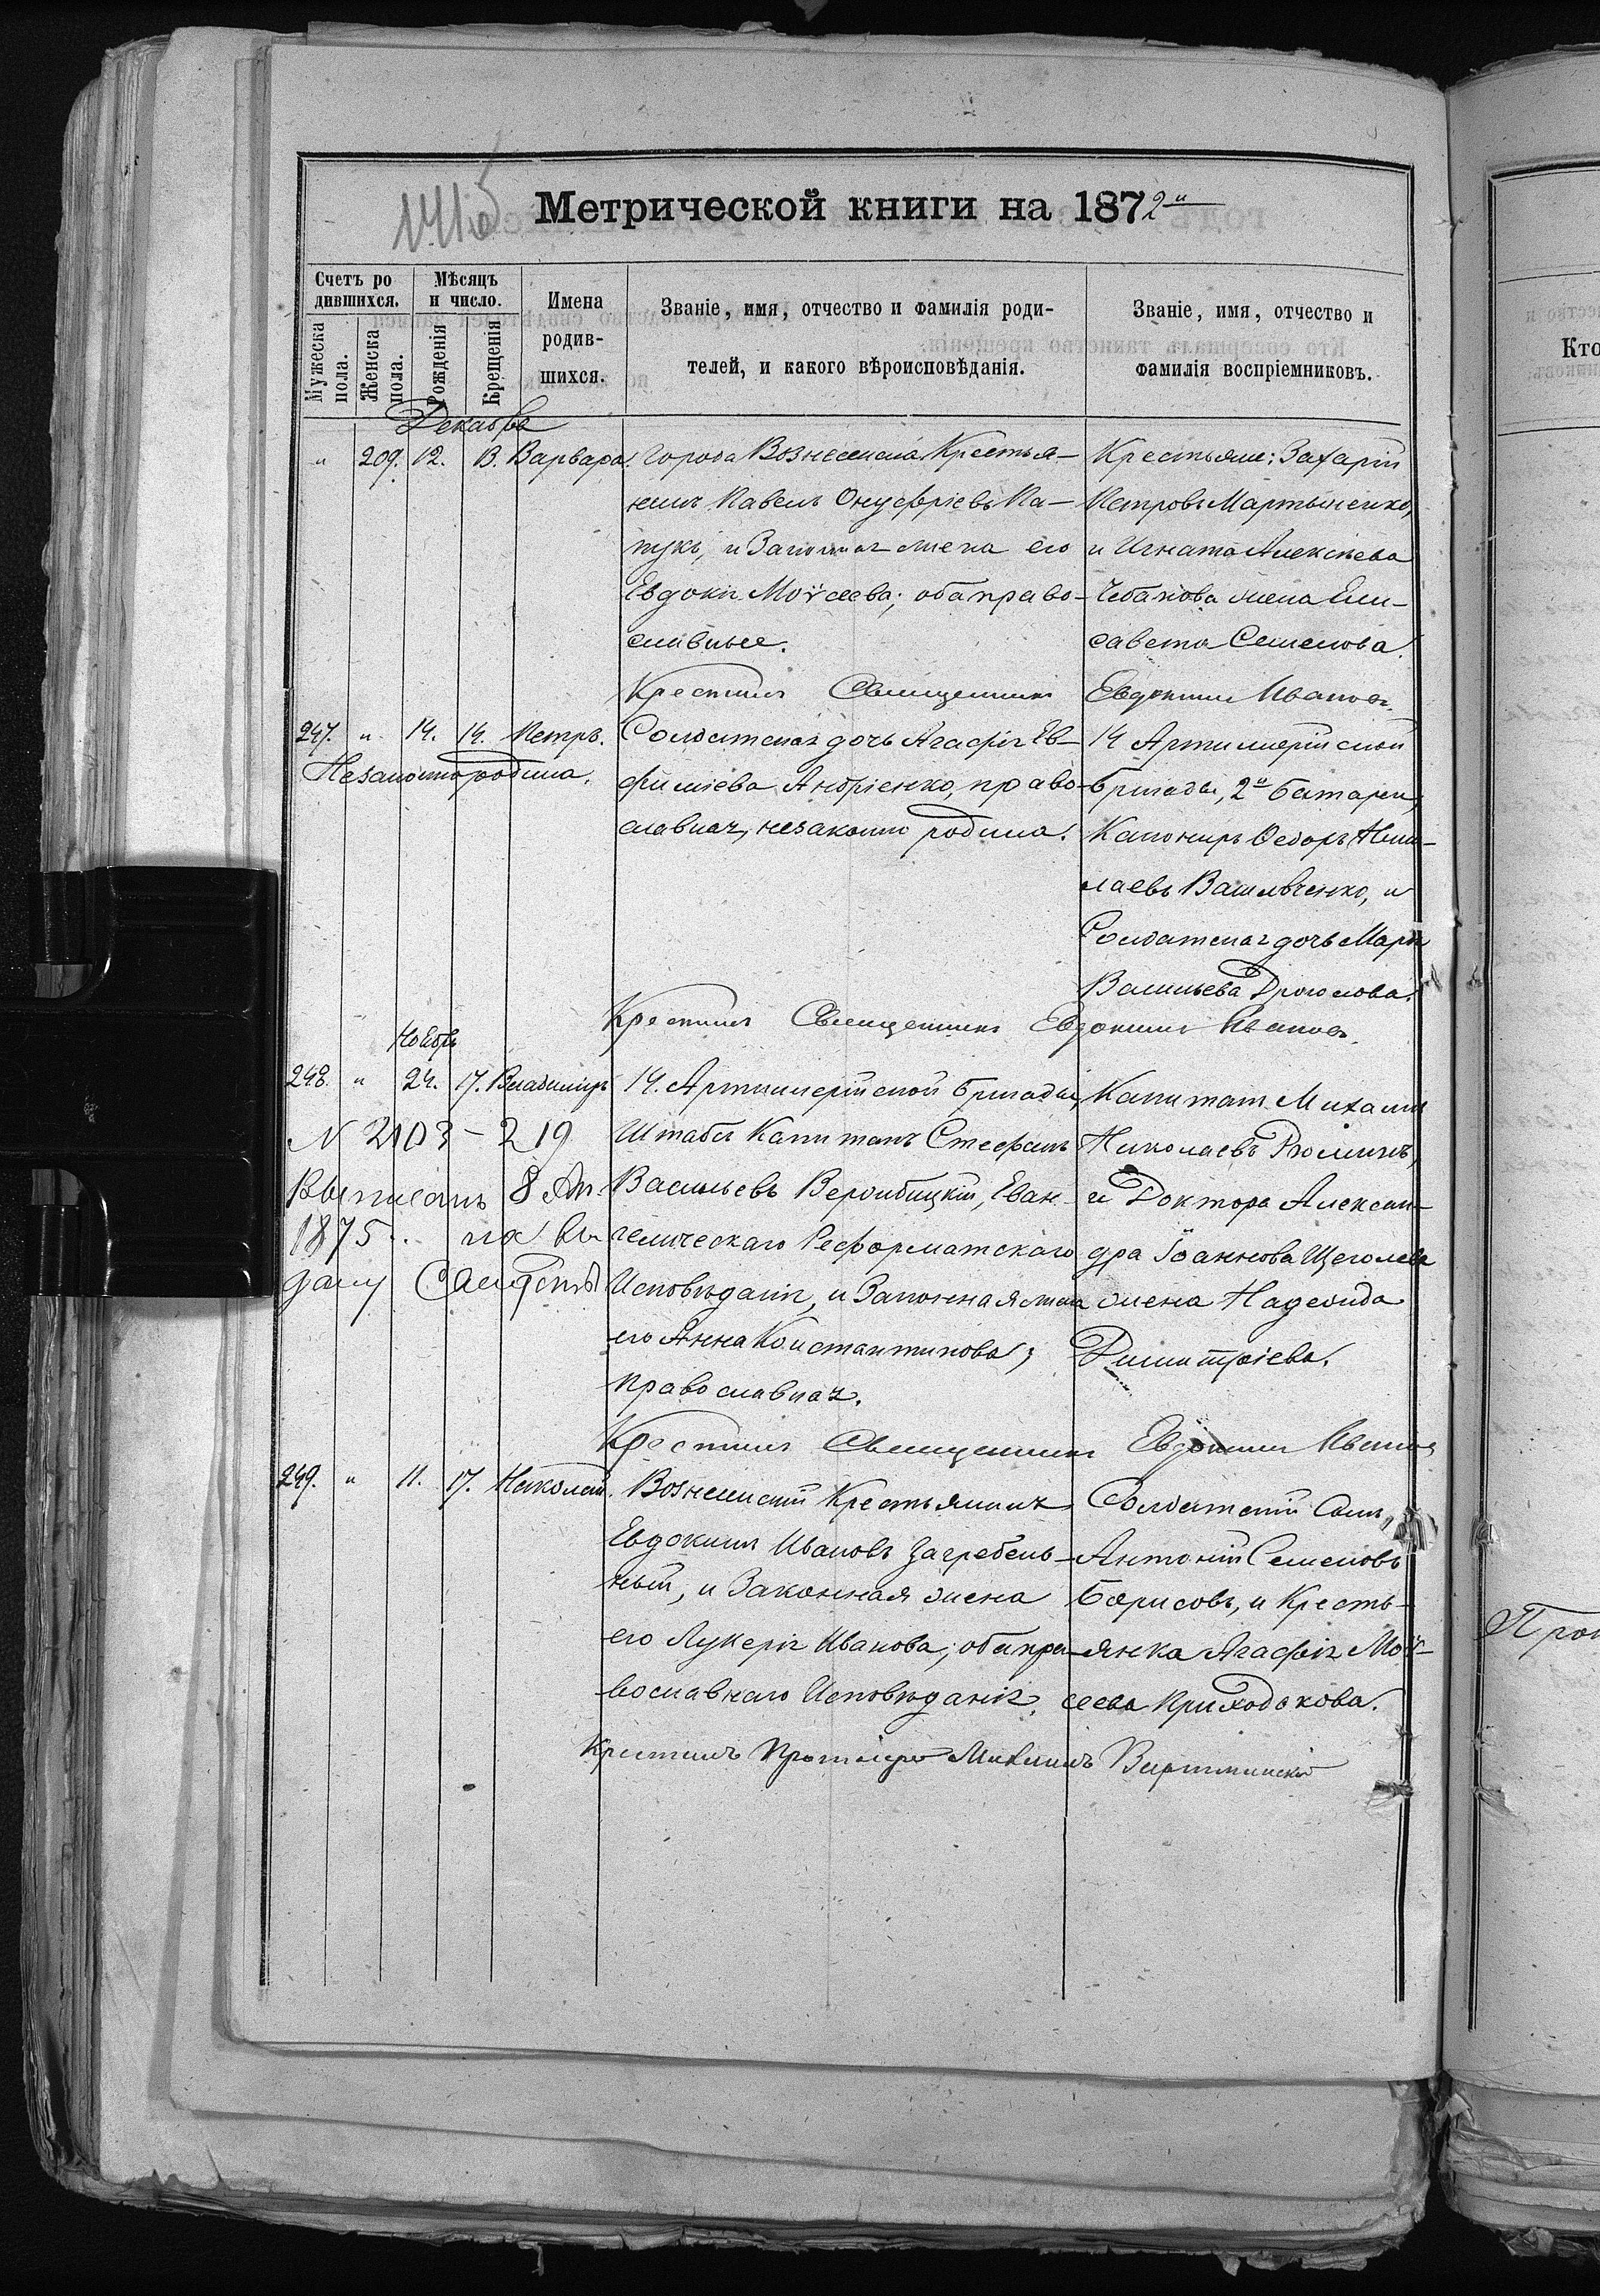 Метрической книги на 1872й
Счетъ ро
дившихся.
Мѣсяцъ
и число.
Мужеска пола.
Женска пола.
Рожденія
Крещенія
Имена
родив-
шихся.
Званіе, имя, отчество и фамилія роди-
телей, и какого вѣроисповѣданія.
Званіе, имя, отчество и
фамилія воспріемниковъ.
Декабрь
" 209. 12. 13. Варвара. Города Вознесенска Крестья-
нинъ Павелъ Онуфріевъ Па-
пукъ, и Законная жена его
Евдокія Моѵсеева; оба право-
славные.
Крестьяне: Захарій
Петровъ Мартыненко,
и Игната Алексѣева
Чебанова жена Ели-
савета Семенова.
Крестилъ Священникъ Евдокимъ Ивановъ.
247. " 14. 14. Петръ.
Незаконнорожденъ.
Солдатская дочь Агафія Ев-
фиміева Андріенко, право-
славная, незаконно родила.
14 Артиллерійской
бригады, 2й батареи,
Канониръ Ѳедоръ Нико-
лаевъ Васильченко, и
Солдатская дочь Марія
Васильева
Крестилъ Священникъ Евдокимъ Ивановъ.
Ноябрь
248. " 24. 17. Владиміръ
N 2103 - 219
Выписанъ 8 Ап.
1875 на вы
дачу
14. Артиллерійской бригады,
Штабсъ Капитанъ Стефанъ
Васильевъ Вербицкій, Еван-
гелическаго Реформатскаго
Исповѣданія, и Законная жена
его Анна Константинова;
православная.
Капитанъ Михаилъ
Николаевъ
и Доктора Алексан-
дра Іоаннова Щеголева
жена Надежда
Димитріева.
Крестилъ Священникъ Евдокимъ Ивановъ
249. " 11. 17. Николай.
Вознесенскій Крестьянинъ
Евдокимъ Ивановъ Загребель-
ный, и Законная жена
его Лукерія Иванова; оба пра-
вославнаго Исповѣданія.
Солдатскій Сынъ,
Антоній Семеновъ
Борисовъ, и Кресть-
янка Агафія Моѵ-
сеева Приходькова.
Крестилъ Протоіерей Михаилъ
Кто